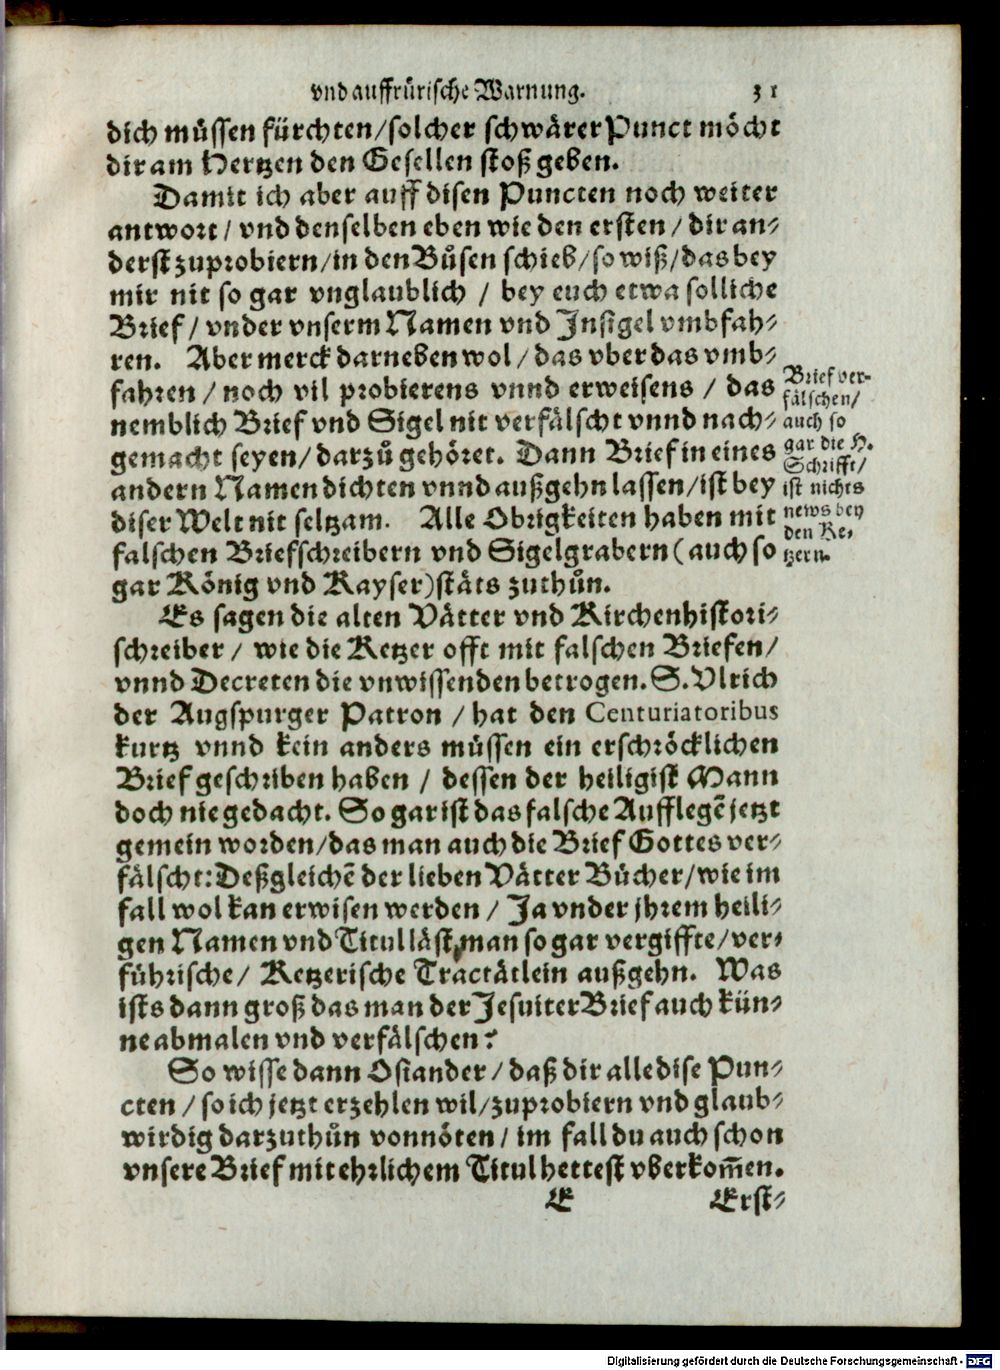 vnd auffrůrische Warnung. 31
dich müssen fürchten/solcher schwärer Punct möcht
dir am Hertzen den Gesellen stoß geben.
Damit ich aber auff disen Puncten noch weiter
antwort/ vnd denselben eben wie den ersten / dir an⸗
derst zuprobiern/in den Bůsen schieb/so wiß/das bey
mir nit so gar vnglaublich / bey euch etwa solliche
Brief/ vnder vnserm Namen vnd Jnsigel vmbfah⸗
ren. Aber merck darneben wol/das vber das vmb⸗
fahren/noch vil probierens vnnd erweisens / das
nemblich Brief vnd Sigel nit verfälscht vnnd nach⸗
gemacht seyen/darzů gehöret. Dann Brief in eines
andern Namen dichten vnnd außgehn lassen/ist bey
diser Welt nit seltzam. Alle Obrigkeiten haben mit
falschen Briefschreibern vnd Sigelgrabern (auch so
gar König vnd Kayser) stäts zuthůn.
Brief ver-
fälschen/
auch so
gar die H.
Schrifft/
ist nichts
news bey
den Ke⸗
tzern.
Es sagen die alten Vätter vnd Kirchenhistori⸗
schreiber / wie die Ketzer offt mit falschen Briefen/
vnnd Decreten die vnwissenden betrogen. S. Vlrich
der Augspurger Patron / hat den Centuriatoribus
kurtz vnnd kein anders müssen ein erschröcklichen
Brief geschriben haben / dessen der heiligist Mann
doch nie gedacht. So gar ist das falsche Aufflegẽ jetzt
gemein worden/das man auch die Brief Gottes ver⸗
fälscht: Deßgleichẽ der lieben Vätter Bücher/wie im
fall wol kan erwisen werden / Ja vnder jhrem heili⸗
gen Namen vnd Titul läst man so gar vergiffte/ver⸗
führische/ Ketzerische Tractätlein außgehn. Was
ists dann groß das man der Jesuiter Brief auch kün⸗
ne abmalen vnd verfälschen?
So wisse dann Osiander/daß dir alle dise Pun⸗
cten/so ich jetzt erzehlen wil/zuprobiern vnd glaub⸗
wirdig darzuthůn vonnöten/im fall du auch schon
vnsere Brief mit ehrlichem Titul hettest vberkom̃en.
E Erst⸗
Digitalisierung gefördert durch die Deutsche Forschungsgemeinschaft - DFG